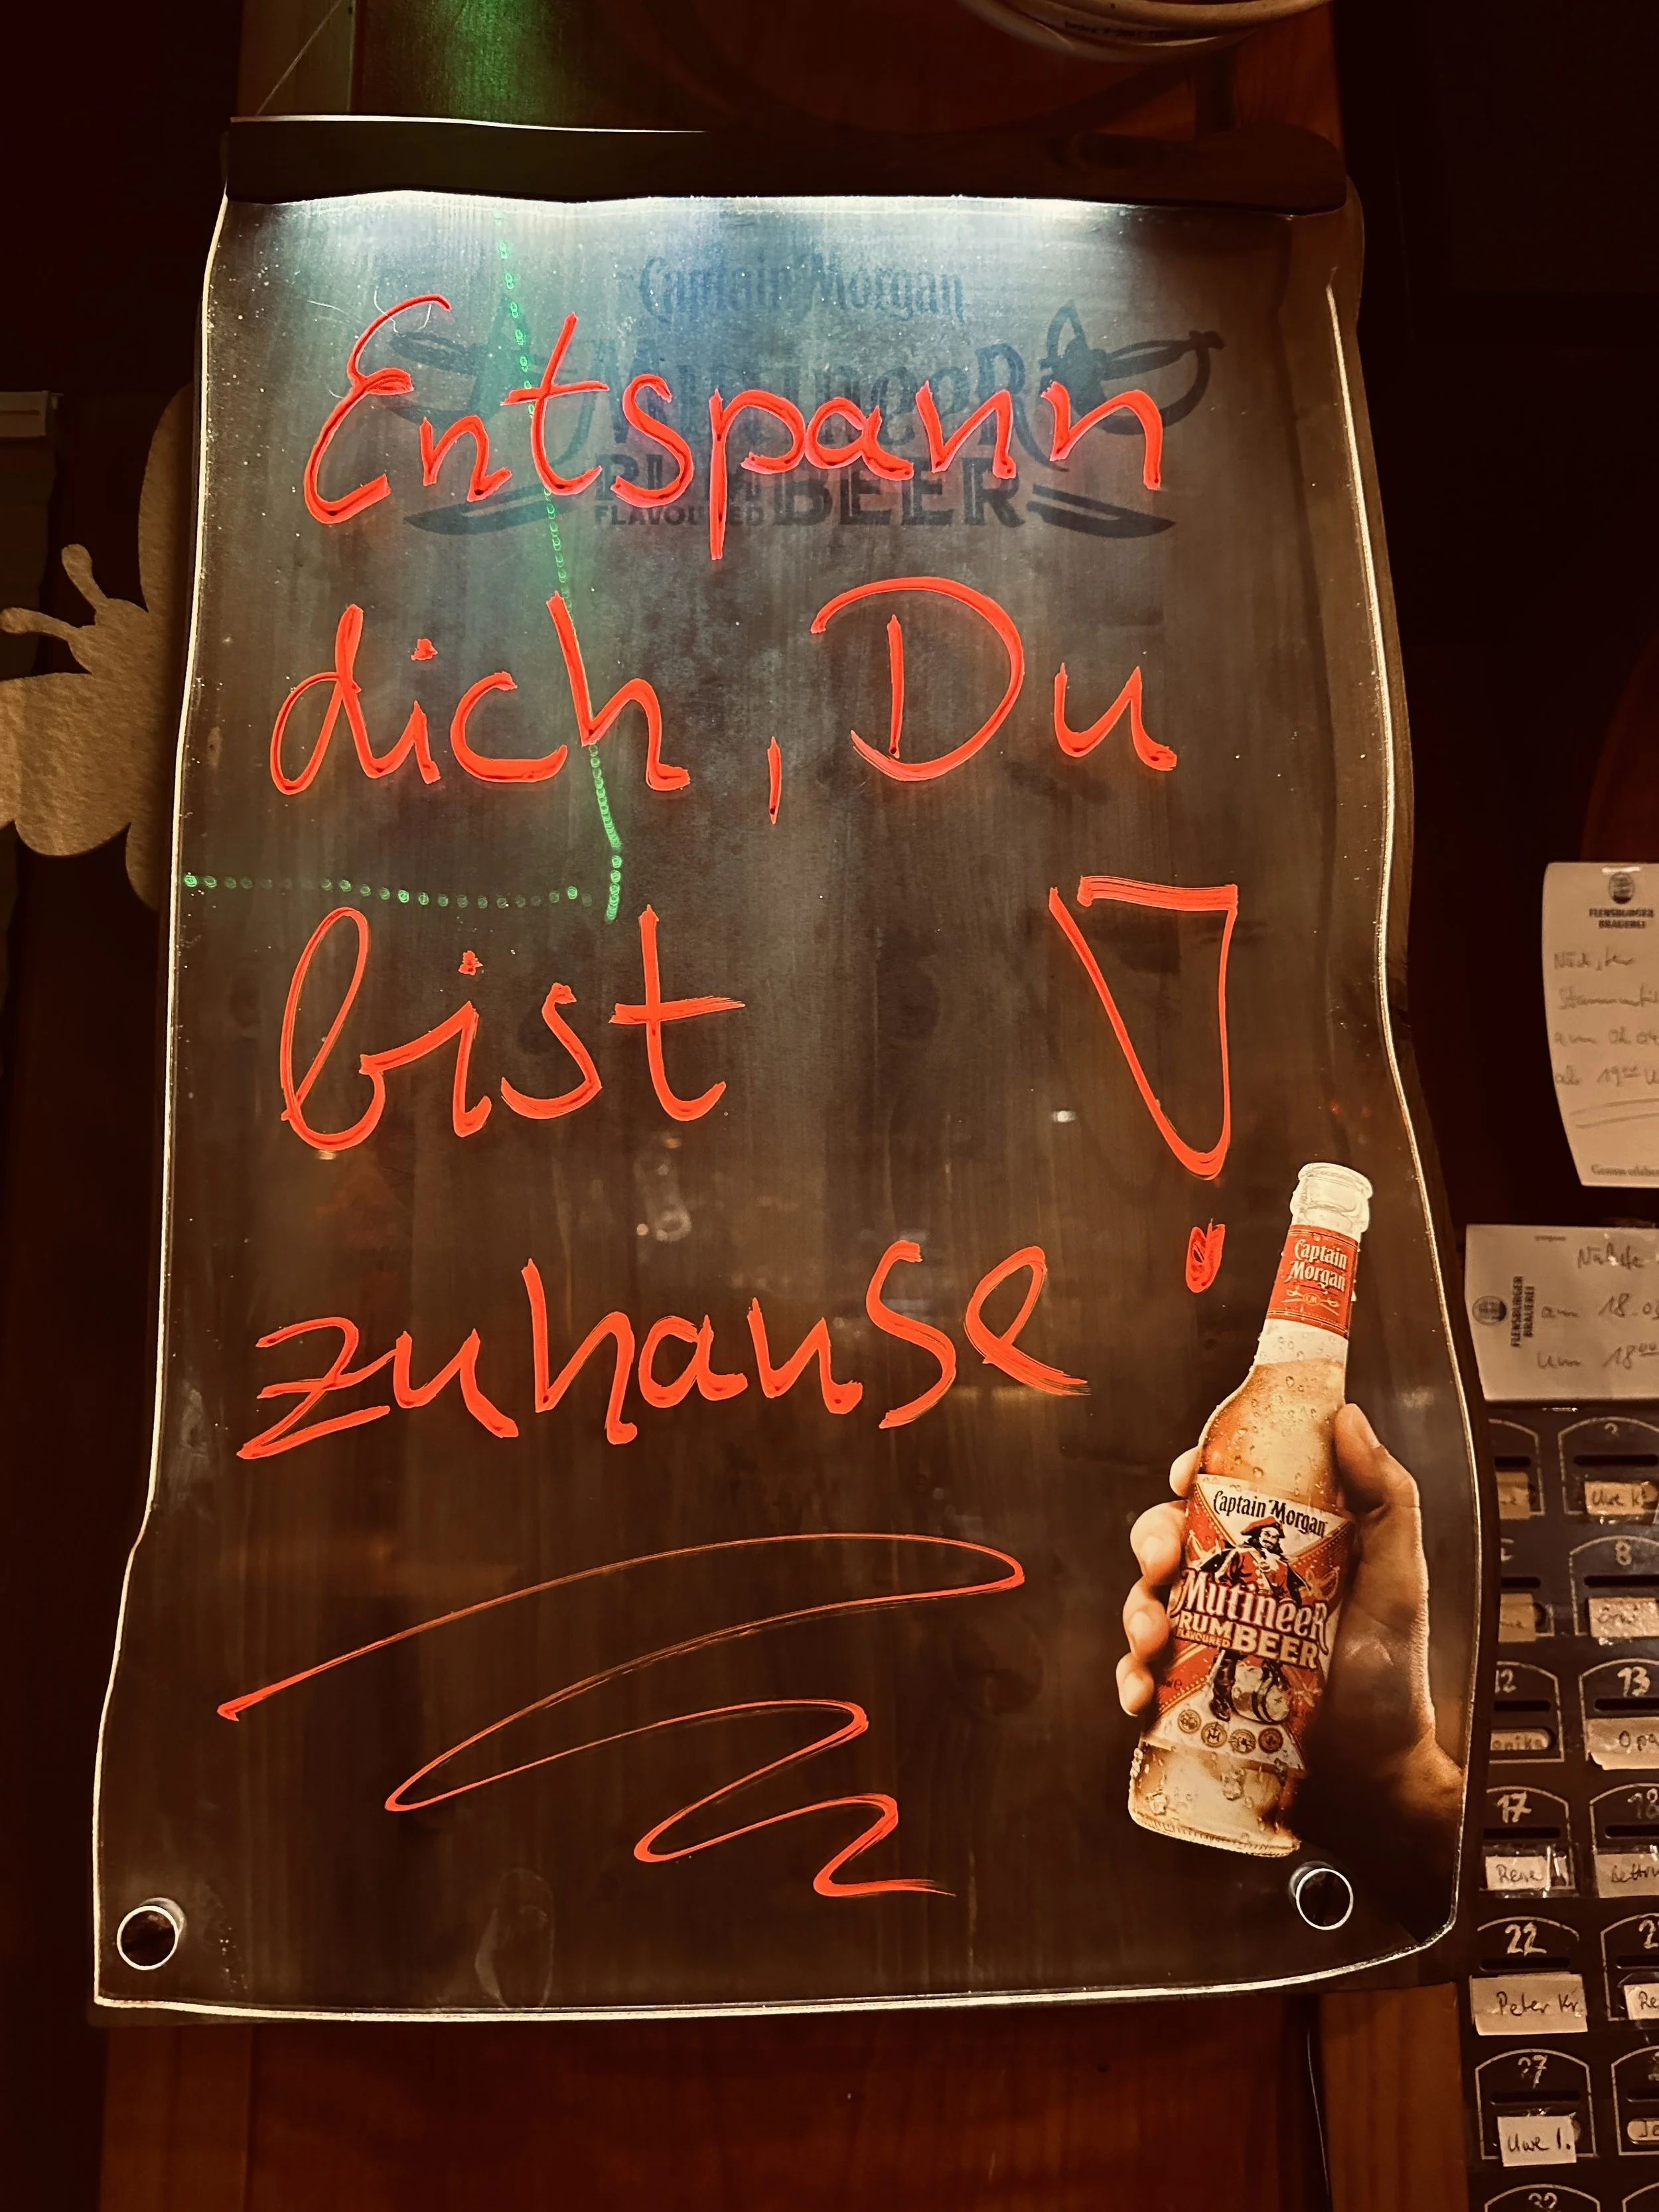 Captain Morgan
MUTINEER
RUM BEER
FLAVOURED
Entspann
dich, Du
bist
zuhause!
Captain
Morgan
Captain Morgan
MUTINEER
RUM BEER
FLAVOURED
FLENSBURGER
BRAUEREI
am
ab 1900
FLENSBURGER
BRAUEREI
am 18.0
um 1800
Uwe K
8
12
13
Opa
17
18
Rene
22
Peter Kr.
27
Uwe I.
32